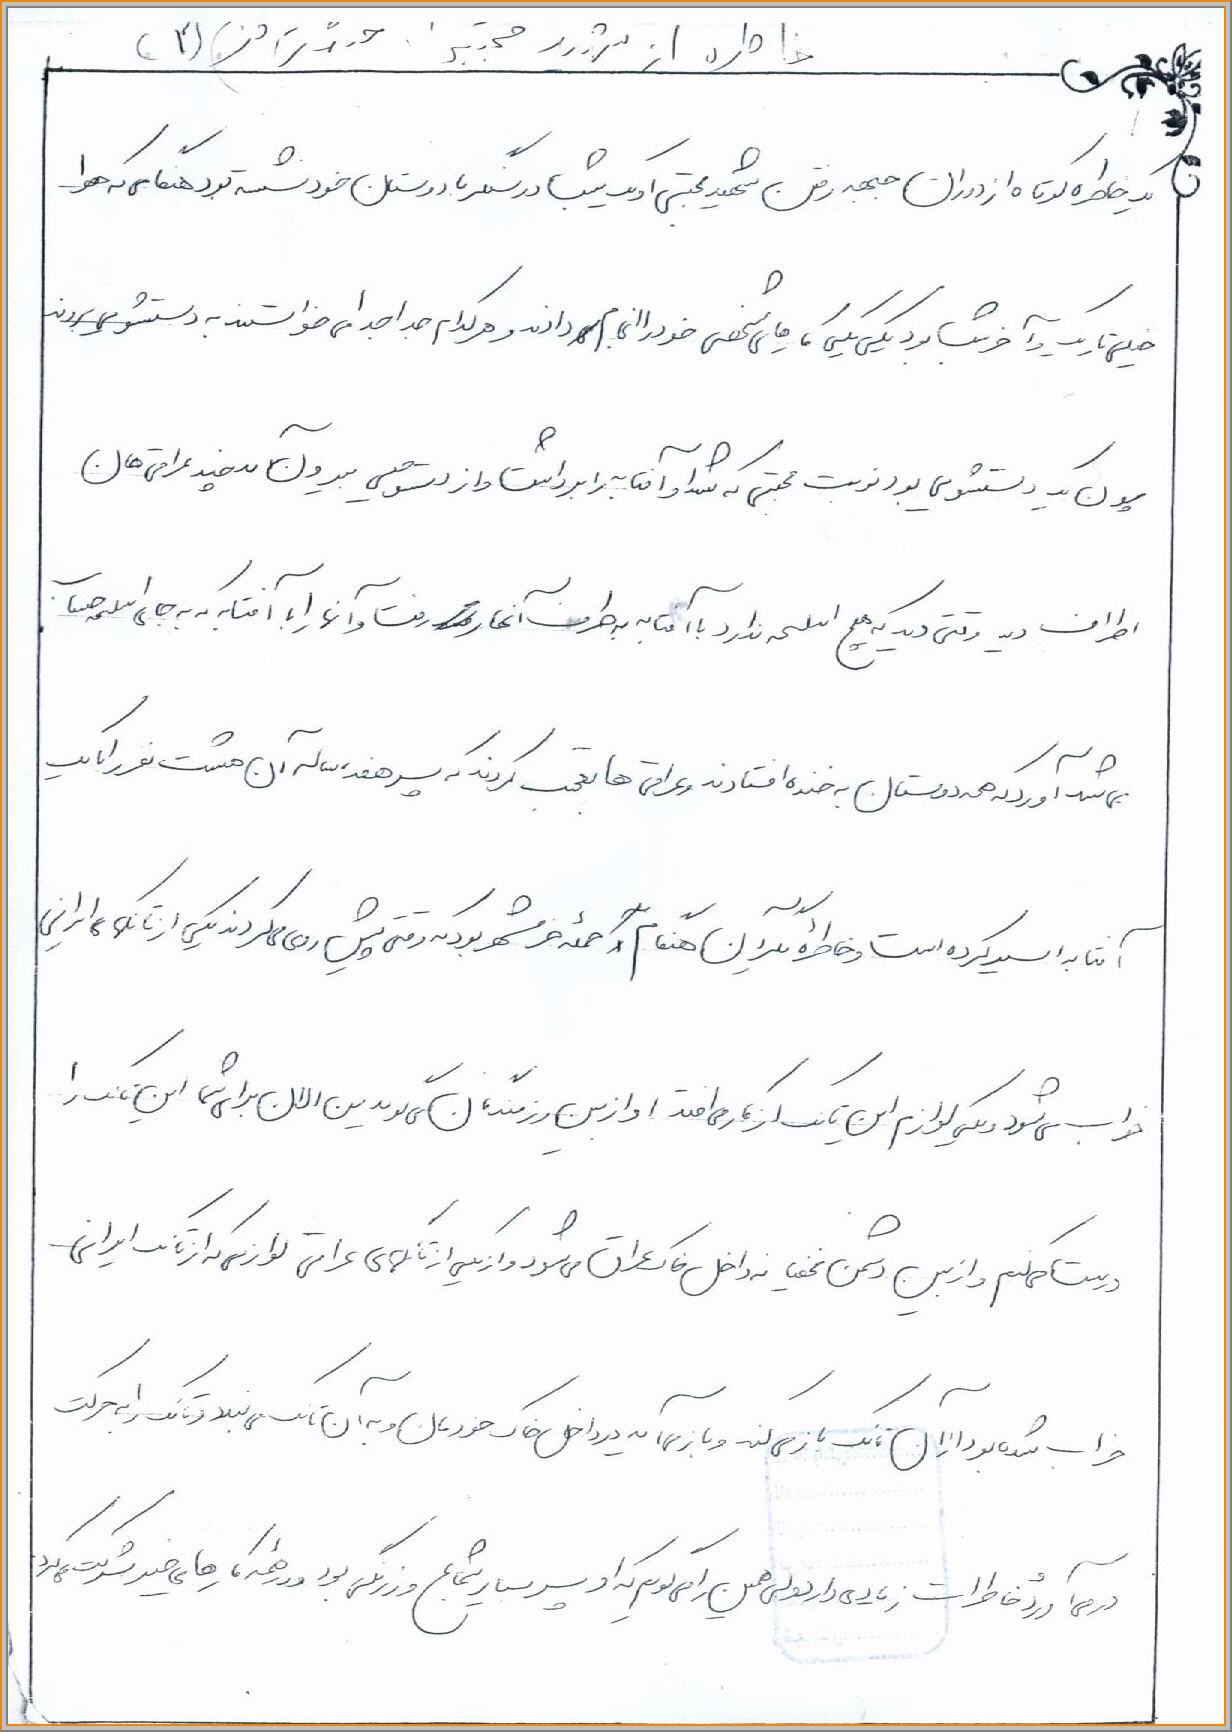 خاطره از شهید مجتبی (۳)
یک خاطره کوتاه از دوران جبهه رفتن شهید مجتبی او یک شب در سنگر با دوستان خود نشسته بود هنگامی که هوا
خیلی تاریک و آخر شب بود یکی یکی کارهای شخصی خود را انجام می دادند و هر کدام جدا جدا می خواستند به دستشویی بروند
چون یک دستشویی بود نوبت مجتبی که شد او آفتابه را برداشت و از دستشویی بیرون آمد چند عراقی هان
اطراف دید وقتی دید که هیچ اسلحه ندارد با آفتابه به طرف آنها رفت و آنها را با آفتابه که به جای اسلحه حساب
می شد آورد که همه دوستان به خنده افتادند و عراقی ها تعجب کردند که پسر هفده ساله آن هشت نفر را با یک
آفتابه اسیر کرده است و خاطره دیگر آن هنگام حمله خرمشهر بود که وقتی پیش روی می کردند یکی از تانکهای ایرانی
خراب می شود و یکی لوازم این تانک از کار می افتد او از بین رزمندگان می گوید من الان برای شما این تانک را
درست می کنم و از بین دشمن مخفیانه داخل خاک عراق می شود و از یکی از تانکهای عراقی لوازمی که از تانک ایرانی
خراب شده بود از آن تانک باز می کند و باز می آید در داخل خاک خودمان و به آن تانک می بندد و تانک را به حرکت
در می آورد خاطرات زیادی دارد ولی همین را می گویم که او پسر بسیار شجاع و زرنگی بود و در همه کارهای خیر شرکت می کرد